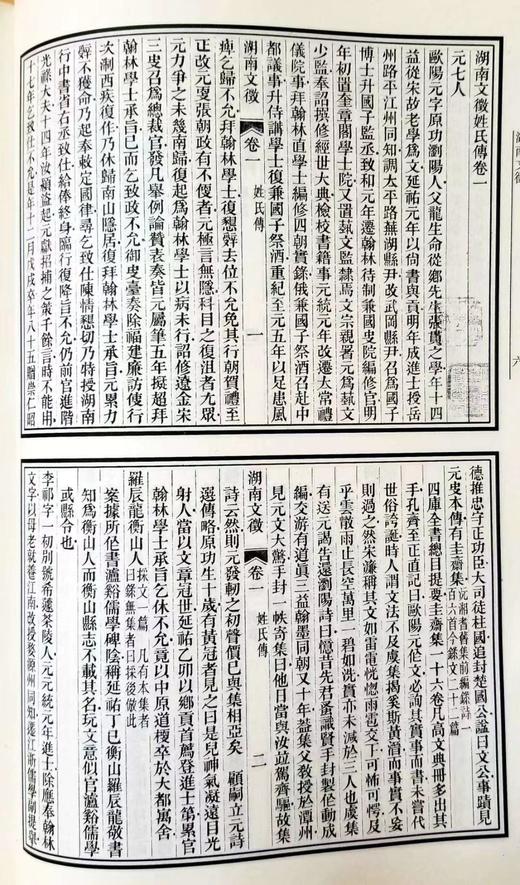 湖南文徵姓氏傳卷一
元七人
歐陽元字原功瀏陽人父龍生命從鄉先生張貫之學年十四
益從宋故老學爲文延祐元年以尚書與貢明年成進士授岳
州路平江州同知調太平路蕪湖縣尹改武岡縣尹召爲國子
博士升國子監丞致和元年遷翰林待制兼國史院編修官明
年初置奎章閣學士院又置藝文監隸焉文宗親署元爲藝文
少監奉詔撰修經世大典檢校書籍事元統元年改遷太常禮
儀院事拜翰林直學士編修四朝實錄俄兼國子祭酒召赴中
都議事升侍講學士復兼國子祭酒重紀至元五年以足患風
湖南文徵 卷一 姓氏傳 一
痺乞歸不允拜翰林學士復懇辭去位不允免其行朝賀禮至
正改元更張朝政有不便者元極言無隱科目之復沮者尤眾
元力爭之未幾南歸復起爲翰林學士以病未行詔修遼金宋
三史召爲總裁官發凡舉例論贊表奏皆元屬筆五年挺超拜
翰林學士承旨已而乞致政不允御史臺奏除福建廉訪使行
次浙西疾復作乃休歸南山隱居復拜翰林學士承旨元累力
辭不獲命乃起奉敕定國律尋乞致仕陳情懇切乃特授湖南
行中書省右丞致仕給俸終身臨行復降旨不允仍前官進階
光祿大夫十四年汝潁盜起元獻招捕之策千餘言時不能用
十七年乞致仕不允是年十二月戊戌卒年八十五贈崇仁昭
德推忠守正功臣大司徒柱國追封楚國公諡曰文公事蹟見
元史本傳有圭齋集沅湘耆舊集前編錄詩一百六首今錄文二十二篇
四庫全書總目提要圭齋集一十六卷凡高文典冊多出其
手孔齊至正直記曰歐陽元作文必詢其實事而書未嘗代
世俗誇誕時人謂文法不及虞集揭奚斯黃溍而事實不妄
則過之然宋濂稱其文如雷電恍惚雨雹交下可怖可愕及
乎雲散雨止長空萬里一碧如洗實亦未減於三人也虞集
有送元謁告還瀏陽詩曰憶昔先君蚤識賢手封製作動成
編交游有道眞三益翰墨同朝又十年蓋集父教授於潭州
見元文大驚手封一帙奇集曰他日當與汝竝駕齊驅故集
湖南文徵 卷一 姓氏傳 二
詩云然則元發軔之初聲價已與集相亞矣 顧嗣立元詩
選傳略原功生十歲有黃冠者見之曰是兒神氣凝遠目光
射人當以文章冠世延祐乙卯以鄉貢首薦登進士第累官
翰林學士承旨乞休不允竟以中原道梗卒於大都寓舍
羅辰龍衡山人採文一篇 凡有本集者曰錄無集者曰採後倣此
案據所作書瀟谿儒學碑陰稱延祐丁巳衡山羅辰龍敬書
知爲衡山人而衡山縣志不載其名玩文意似官瀘谿儒學
或縣令也
李祁字一初別號希蘧茶陵人元元統元年進士除應奉翰林
文字以母老就養江南改授婺源州同知遷江浙儒學副提舉